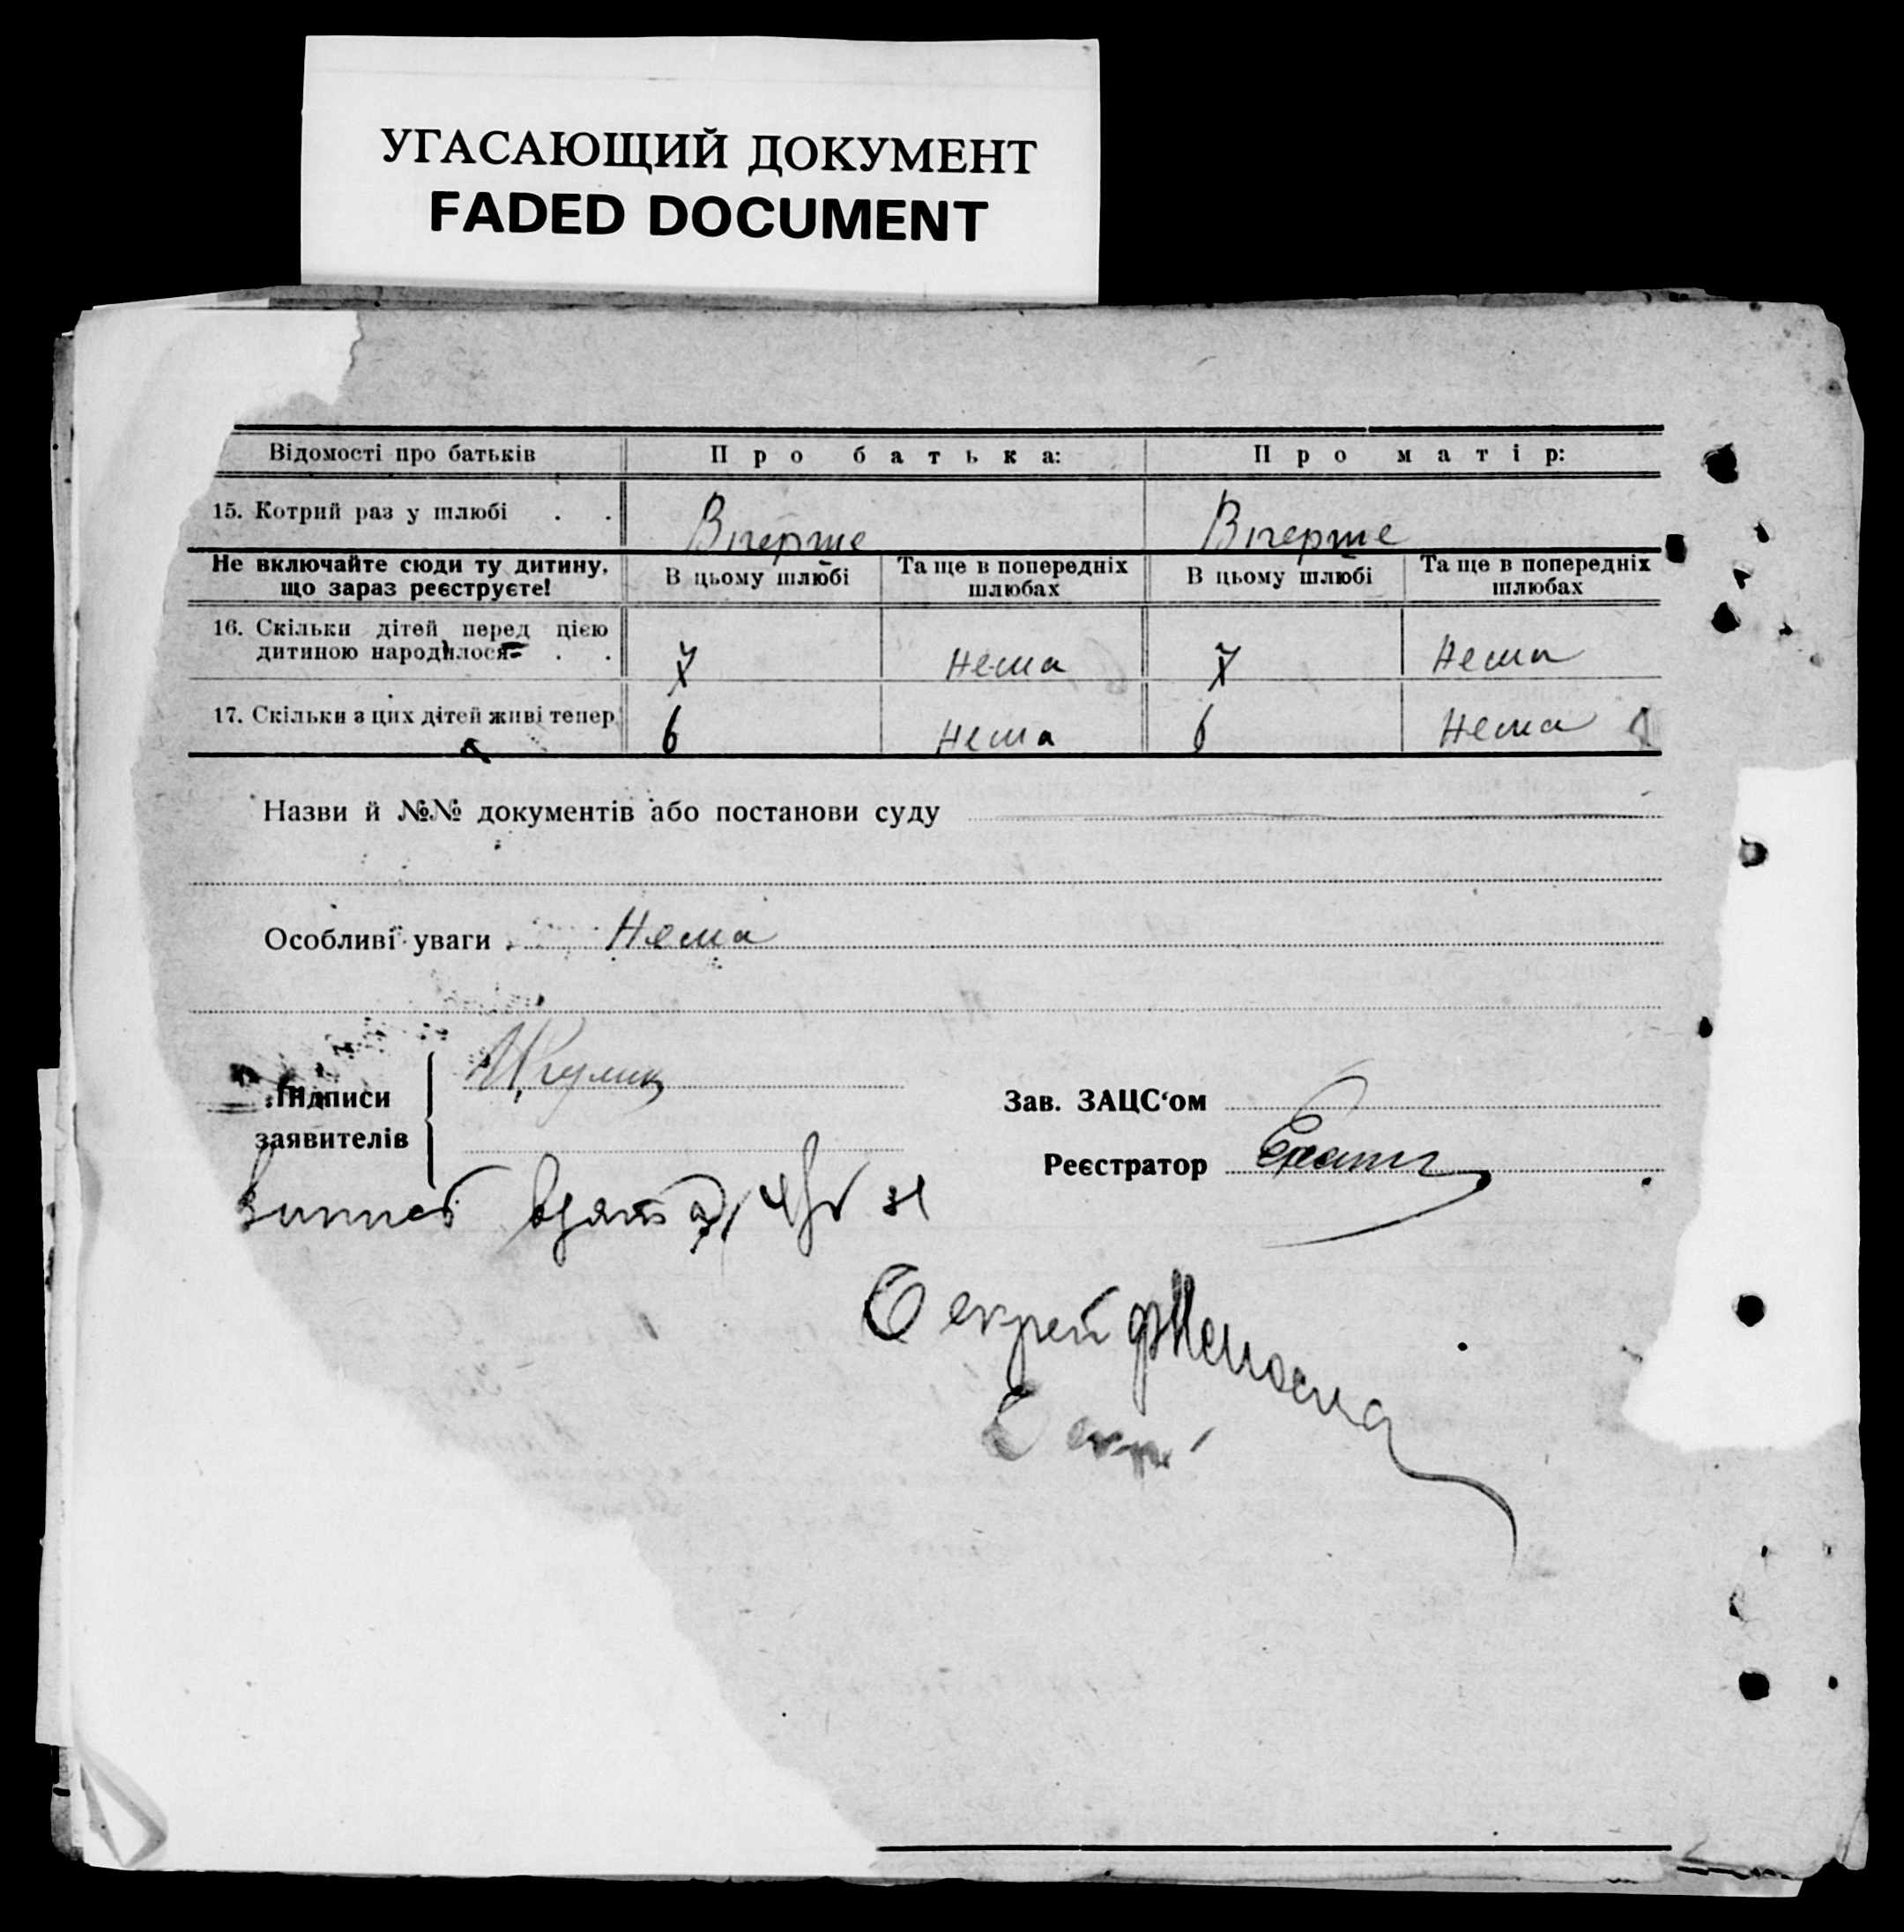 УГАСАЮЩИЙ ДОКУМЕНТ
FADED DOCUMENT
Відомості про батьків Про батька: Про матір:
15. Котрий раз у шлюбі . . Вперше Вперше
Не включайте сюди ту дитину, що зараз реєструєте! В цьому шлюбі Та ще в попередніх шлюбах В цьому шлюбі Та ще в попередніх шлюбах
16. Скільки дітей перед цією дитиною народилося . . 7 Нема 7 Нема
17. Скільки з цих дітей живі тепер 6 Нема 6 Нема
Назви й №№ документів або постанови суду
Особливі уваги Нема
Підписи заявителів
Зав. ЗАЦС‘ом
Реєстратор